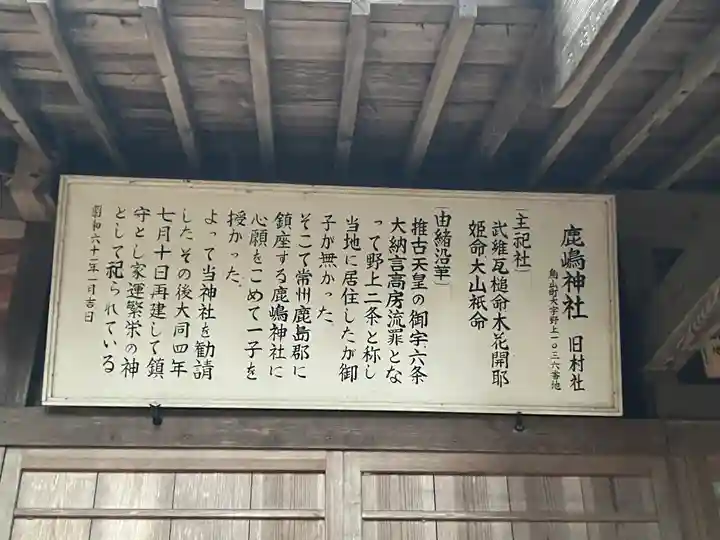 鹿嶋神社 旧村社
烏山町大字野上一〇三六番地
［主祀社］
武維瓦槌命木花開耶
姫命大山祇命
［由緒沿革］
推古天皇の御宇六条
大納言高房流罪とな
って野上二条と称し
当地に居住したが御
子が無かった
そこで常州鹿島郡に
鎮座する鹿嶋神社に
心願をこめて一子を
授かった。
よって当神社を勧請
した その後大同四年
七月十日再建して鎮
守とし家運繁栄の神
として祀られている
昭和六十一年一月吉日